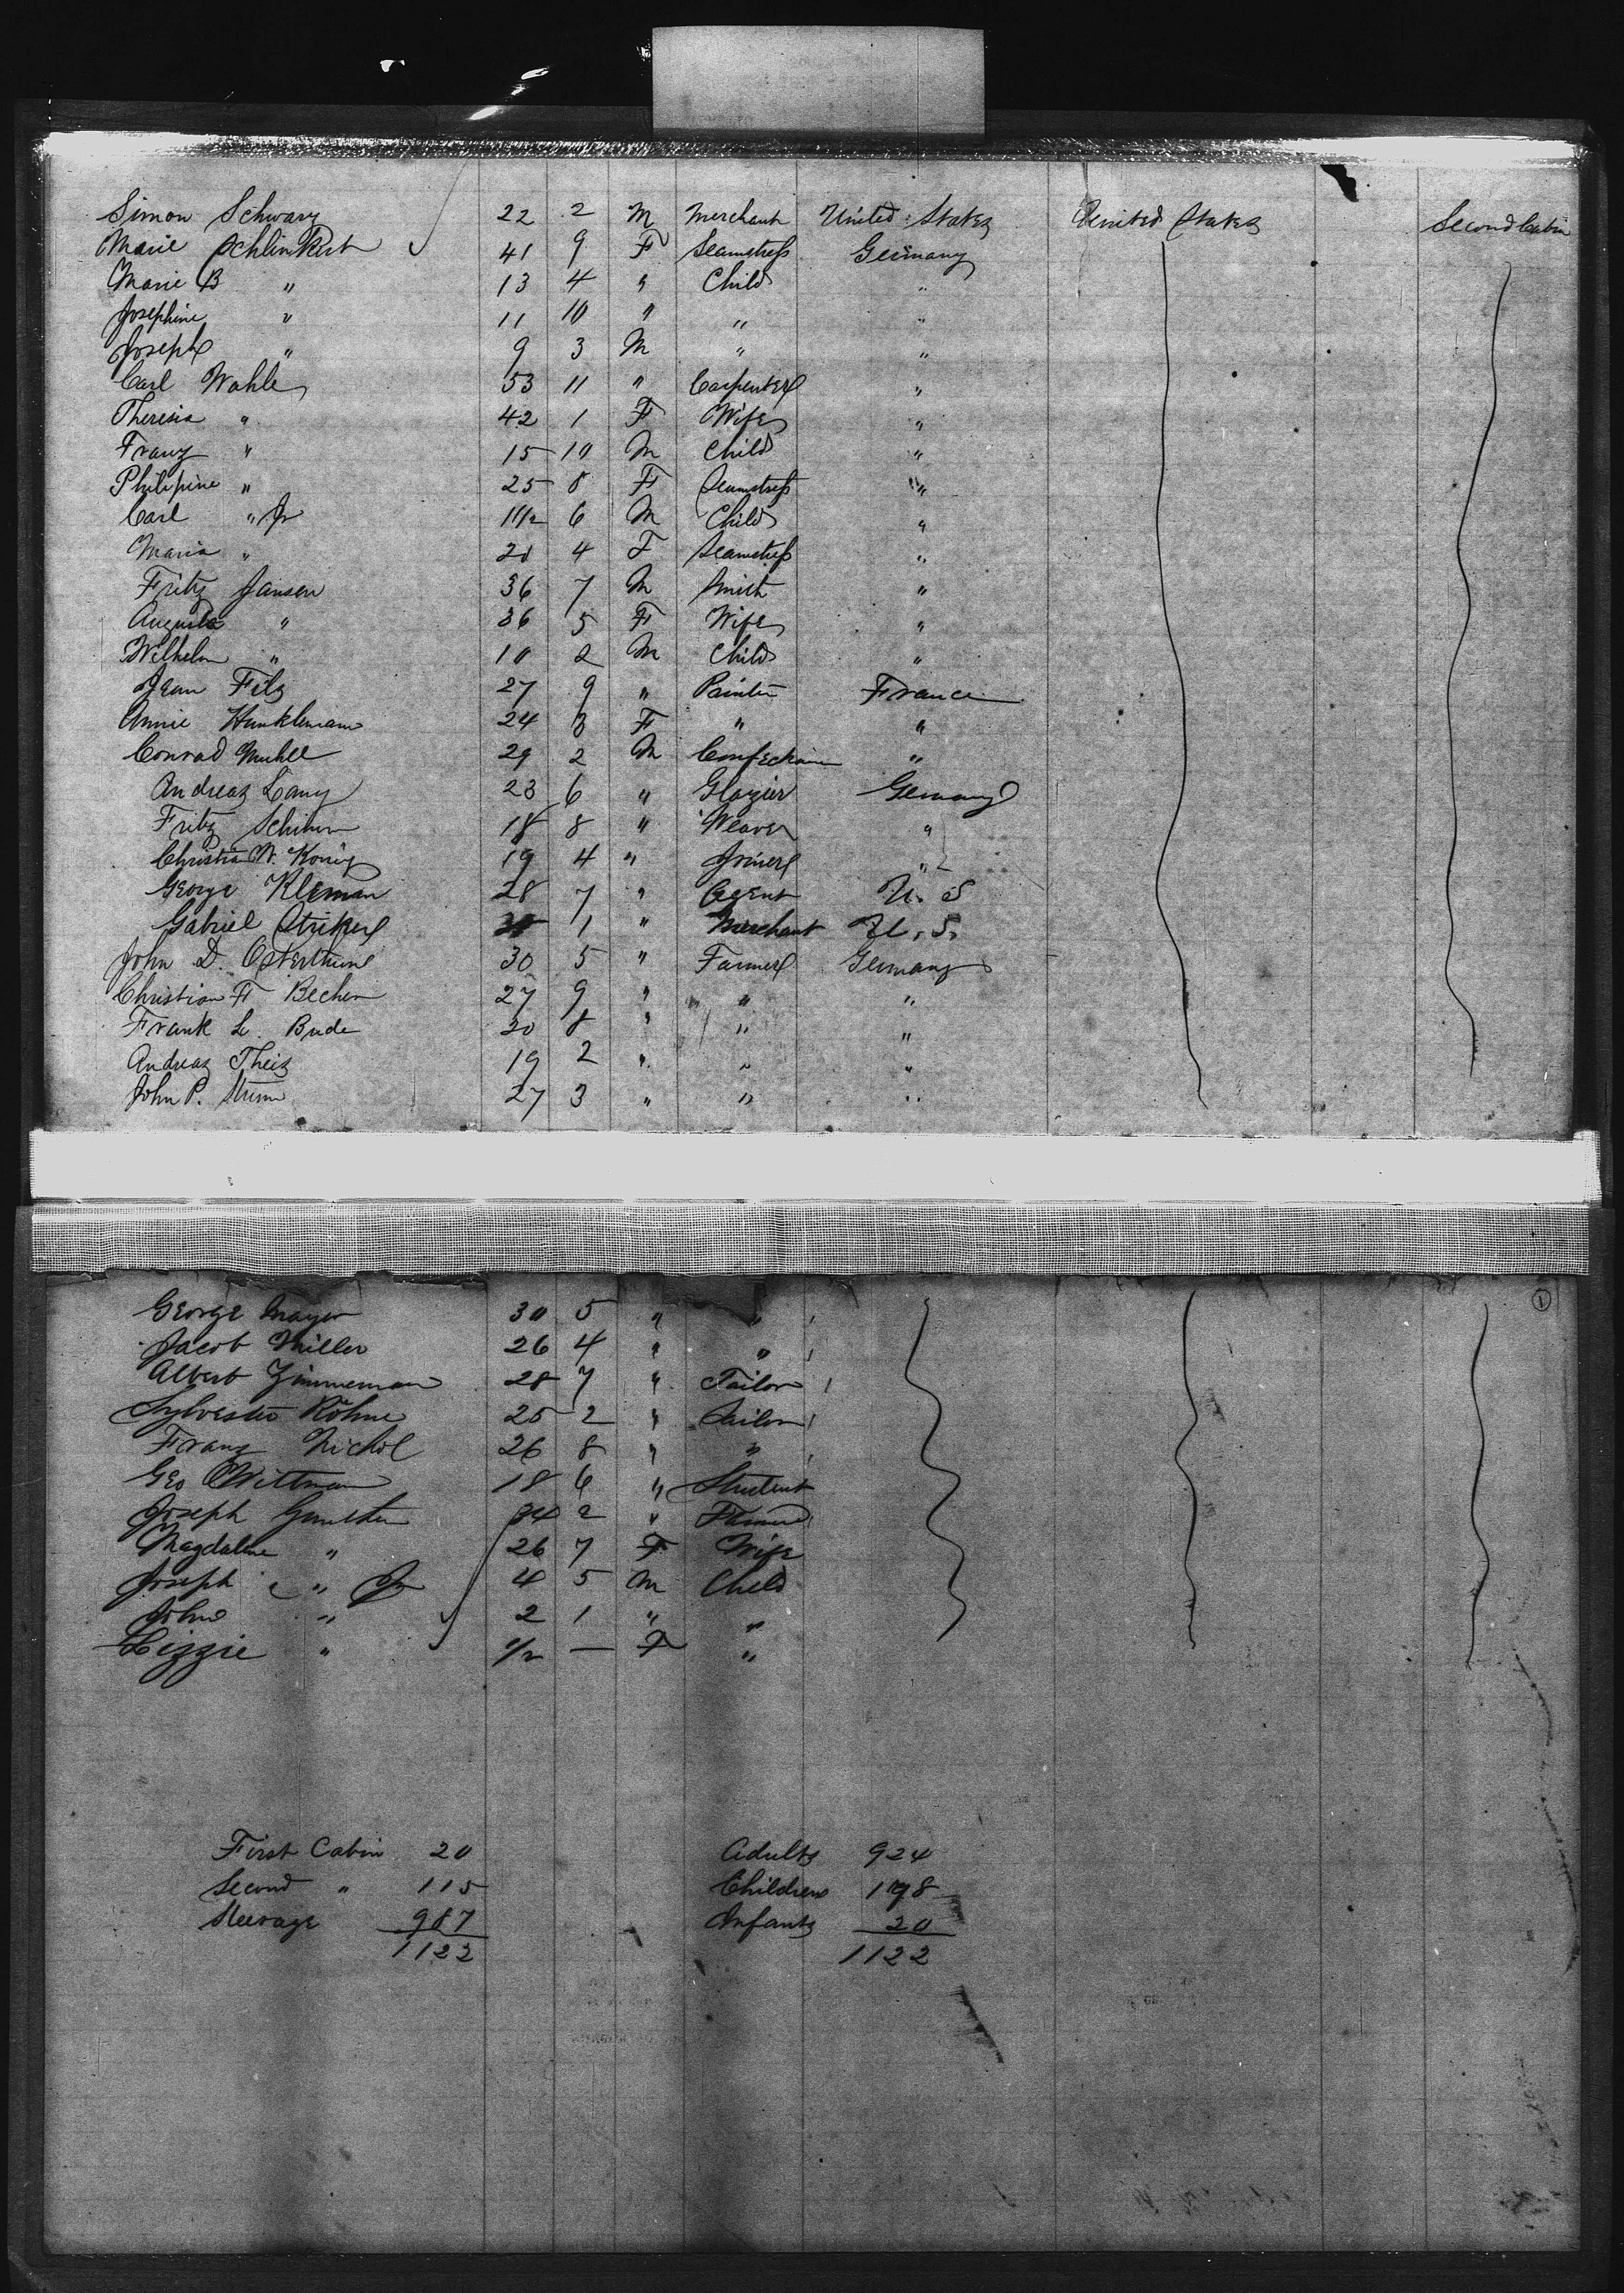 Simon Schwarz 22 2 M Merchant United States United States Second Cabin
Marie Schlinkert 41 9 F Seamstress Germany
Marie B " 13 4 " Child "
Josephine " 11 10 " " "
Joseph " 9 3 M " "
Carl Wahle 53 11 " Carpenter "
Theresia " 42 1 F Wife "
Franz " 15 10 M Child "
Philipine " 25 8 F Seamstress "
Carl " Jr 11 1/2 6 M Child "
Maria " 20 4 F Seamstress "
Fritz Jansen 36 7 M Smith "
Augusta " 36 5 F Wife "
Wilhelm " 10 2 M Child "
Jean Filz 27 9 " Painter France
Annie Hunklemann 24 3 F " "
Conrad Muhll 29 2 M Confectioner "
Andreas Lang 23 6 " Glazier Germany
Fritz 18 8 " Weaver "
Christian W. Konig 19 4 " Joiner "
George Kleman 28 7 " Agent U. S
Gabriel Striker 1 " Merchant U. S.
John D. 30 5 " Farmer Germany
Christian F Becher 27 9 " " "
Frank L. Bude 20 8 " " "
Andreas Theis 19 2 " " "
John P. 27 3 " " "
George Mayer 30 5 " "
Jacob Miller 26 4 " "
Albert Zimmerman 28 7 " Tailor
Sylvester Röhne 25 2 " Sailor
Franz Nichol 26 8 " "
Geo Wittman 18 6 " Student
Joseph 34 2 " Farmer
Magdalene " 26 7 F Wife
Joseph " Jr 4 5 M Child
John " 2 1 " "
Lizzie " 1/2 — F "
First Cabin 20 Adults 924
Second " 115 Children 178
Steerage 987 Infants 20
1122 1122